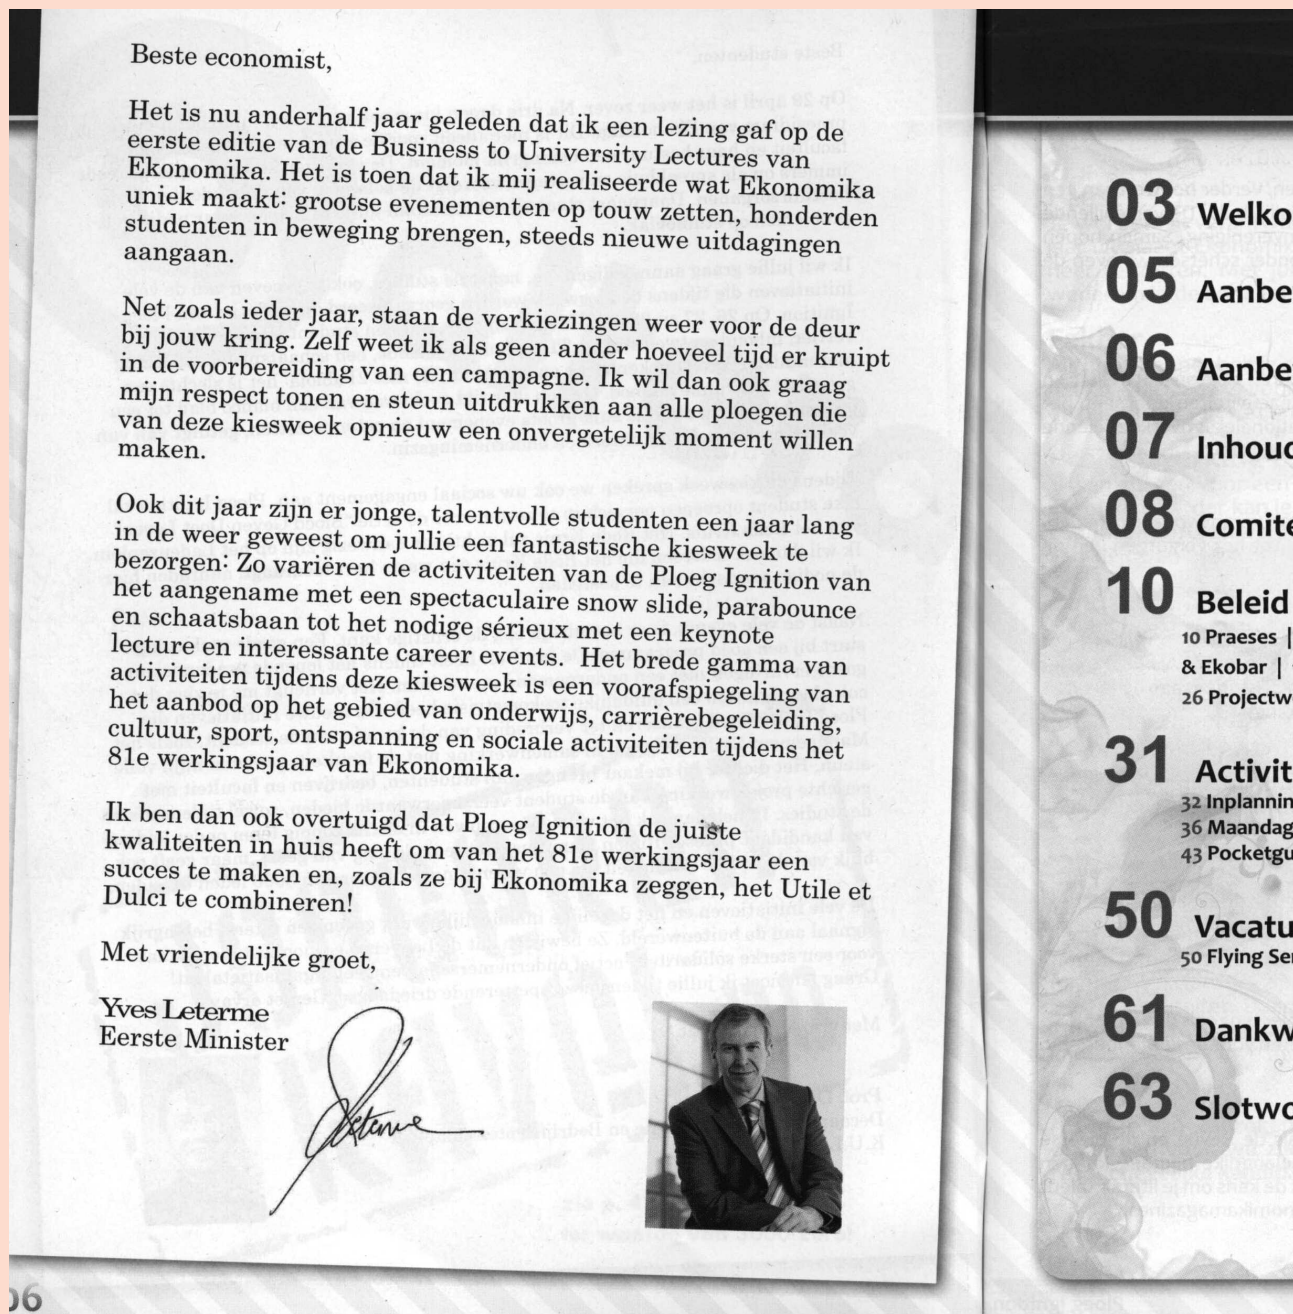 Beste economist,
Het is nu anderhalf jaar geleden dat ik een lezing gaf op de
eerste editie van de Business to University Lectures van
Ekonomika. Het is toen dat ik mij realiseerde wat Ekonomika
uniek maakt: grootse evenementen op touw zetten, honderden
studenten in beweging brengen, steeds nieuwe uitdagingen
aangaan.
Net zoals ieder jaar, staan de verkiezingen weer voor de deur
bij jouw kring. Zelf weet ik als geen ander hoeveel tijd er kruipt
in de voorbereiding van een campagne. Ik wil dan ook graag
mijn respect tonen en steun uitdrukken aan alle ploegen die
van deze kiesweek opnieuw een onvergetelijk moment willen
maken.
Ook dit jaar zijn er jonge, talentvolle studenten een jaar lang
in de weer geweest om jullie een fantastische kiesweek te
bezorgen: Zo variëren de activiteiten van de Ploeg Ignition van
het aangename met een spectaculaire snow slide, parabounce
en schaatsbaan tot het nodige sérieux met een keynote
lecture en interessante career events. Het brede gamma van
activiteiten tijdens deze kiesweek is een voorafspiegeling van
het aanbod op het gebied van onderwijs, carrièrebegeleiding,
cultuur, sport, ontspanning en sociale activiteiten tijdens het
81e werkingsjaar van Ekonomika.
Ik ben dan ook overtuigd dat Ploeg Ignition de juiste
kwaliteiten in huis heeft om van het 81e werkingsjaar een
succes te maken en, zoals ze bij Ekonomika zeggen, het Utile et
Dulci te combineren!
Met vriendelijke groet,
Yves Leterme
Eerste Minister
Leterme
06
03 Welko
05 Aanbe
06 Aanbe
07 Inhoud
08 Comite
10 Beleid
10 Praeses |
& Ekobar |
26 Projectw
31 Activit
32 Inplannin
36 Maandag
43 Pocketgu
50 Vacatu
50 Flying Se
61 Dankw
63 Slotwo